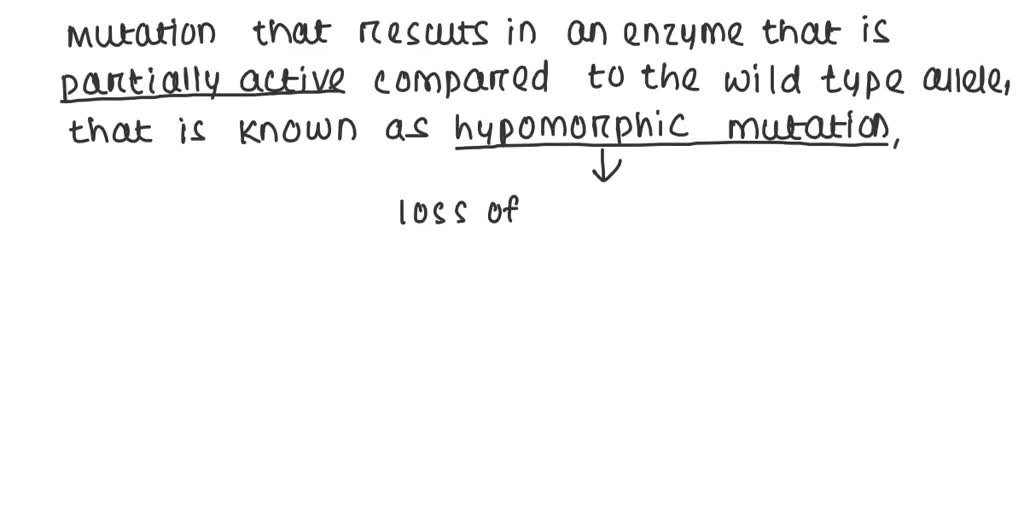 mutation that results in an enzyme that is
partially active compared to the wild type allele,
that is known as hypomorphic mutation,
↓
loss of